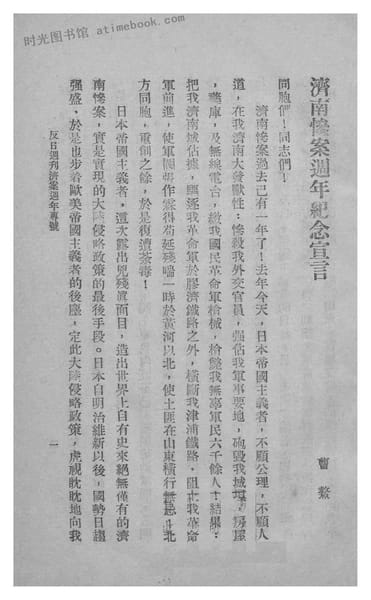 时光图书馆 atimebook.com
濟南慘案週年紀念宣言
曹
同胞們！同志們！
濟南慘案過去已有一年了！去年今天，日本帝國主義者，不顧公理，不顧人
道，在我濟南大發獸性：慘殺我外交官員，强佔我軍事要地，砲毀我城垣，房屋
，藥庫，及無線電台，繳我國民革命軍槍械，槍斃我無辜軍民六千餘人！結果：
把我濟南城佔據，驅逐我革命軍於膠濟鐵路之外，橫斷我津浦鐵路，阻止我革命
軍前進，使軍閥張作霖得苟延殘喘一時於黃河以北，使土匪在山東橫行無忌！北
方同胞，重創之餘，於是復遭荼毒！
日本帝國主義者，這次露出兇殘眞面目，造出世界上自有史來絕無僅有的濟
南慘案，實是實現的大陸侵略政策的最後手段。日本自明治維新以後，國勢日趨
强盛，於是也步着歐美帝國主義者的後塵，定此大陸侵略政策，虎視眈眈地向我
反日週刊濟案週年專號
一